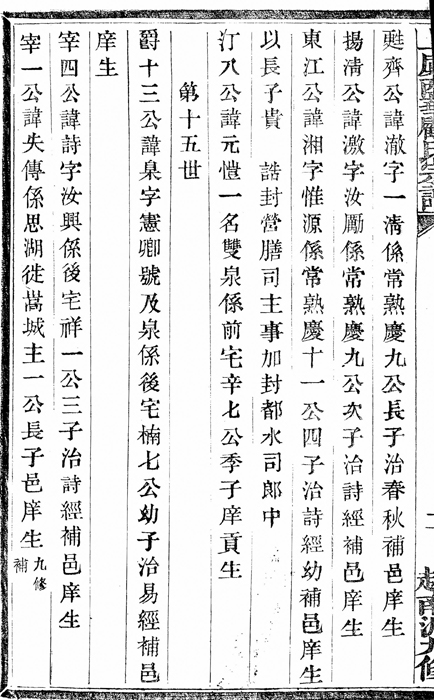 甦齊公諱澈字一清係常熟慶九公長子治春秋補邑庠生
揚清公諱激字汝勵係常熟慶九公次子治詩經補邑庠生
東江公諱湘字惟源係常熟慶十一公四子治詩經幼補邑庠生
以長子貴 誥封營膳司主事加封都水司郎中
汀八公諱元愷一名雙泉係前宅辛七公季子庠貢生
第十五世
爵十三公諱臬字憲卿號及泉係後宅楠七公幼子治易經補邑
庠生
宰四公諱詩字汝興係後宅祥一公三子治詩經補邑庠生
宰一公諱失傳係思湖徙嵩城主一公長子邑庠生九修補